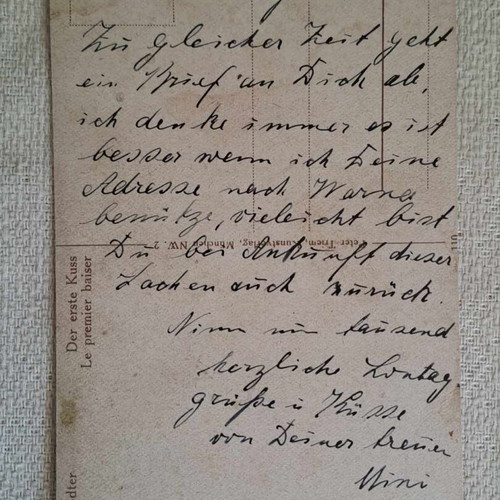 Zu gleicher Zeit geht
ein Brief an Dich ab,
ich denke immer es ist
besser wenn ich Deine
Adresse nach Warna
benütze, vieleicht bist
Du bei Ankunft dieser
Sachen auch zurück.
Nimm nun tausend
herzliche Sontag
grüße u Küsse
von Deiner treuen
Mini
Peter-Triem, Kunstverlag, München NW. 2
110
Der erste Kuss
Le premier baiser